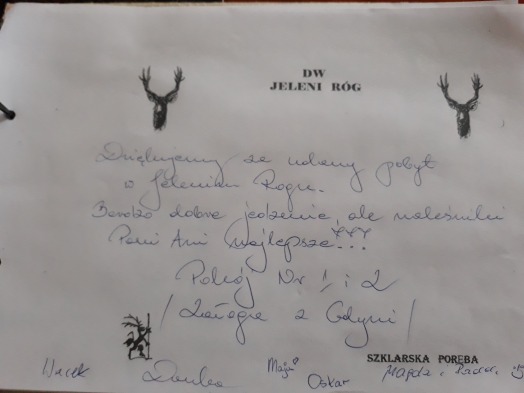 DW
JELENI RÓG
Dziękujemy za udany pobyt
w Jelenim Rogu.
Bardzo dobre jedzenie, ale naleśniki
Pani Ani najlepsze!!!
Pokój Nr 1 i 2
/Załoga z Gdyni/
SZKLARSKA PORĘBA
Jacek
Danka
Maja
Oskar
Magda i